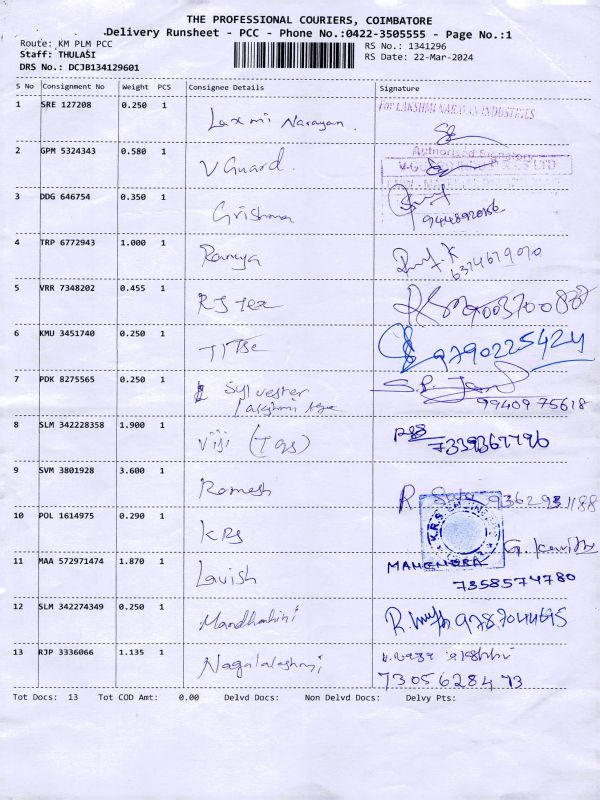 THE PROFESSIONAL COURIERS, COIMBATORE
Delivery Runsheet - PCC - Phone No.:0422-3505555 - Page No.:1
Route: KM PLM PCC RS No.: 1341296
Staff: THULASI RS Date: 22-Mar-2024
DRS No.: DCJB134129601
S No Consignment No Weight PCS Consignee Details Signature
1 SRE 127208 0.250 1 Laxmi Narayan. For LAKSHMI NARAYAN INDUSTRIES
Authorised Signatory
2 GPM 5324343 0.580 1 V Guard.
3 DDG 646754 0.350 1 Grishma
4 TRP 6772943 1.000 1 Ramya
6374679070
5 VRR 7348202 0.455 1 RJ Tex
6 KMU 3451740 0.250 1 9790225424
7 PDK 8275565 0.250 1 Sylvester
99409 75618
8 SLM 342228358 1.900 1 Viji (Tqs) 7339367796
9 SVM 3801928 3.600 1 Ramesh
10 POL 1614975 0.290 1 KRS
11 MAA 572971474 1.870 1 Lavish MAHENDRA
7358574780
12 SLM 342274349 0.250 1 Mandhakini
13 RJP 3336066 1.135 1 Nagalakshmi
7305628473
Tot Docs: 13 Tot COD Amt: 0.00 Delvd Docs: Non Delvd Docs: Delvy Pts: